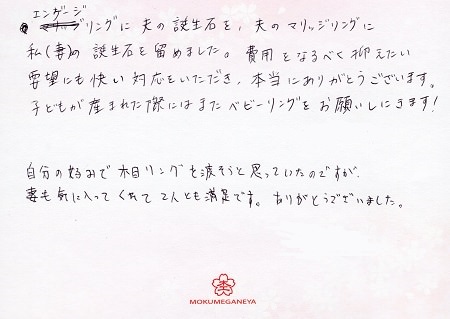 エンゲージ
リングに夫の誕生石を、夫のマリッジリングに
私(妻)の誕生石を留めました。費用をなるべく抑えたい
要望にも快い対応をいただき、本当にありがとうございます。
子どもが産まれた際にはまたベビーリングをお願いしにきます!
自分の好みで木目リングを渡そうと思っていたのですが、
妻も気に入ってくれて2人とも満足です。ありがとうございました。
MOKUMEGANEYA